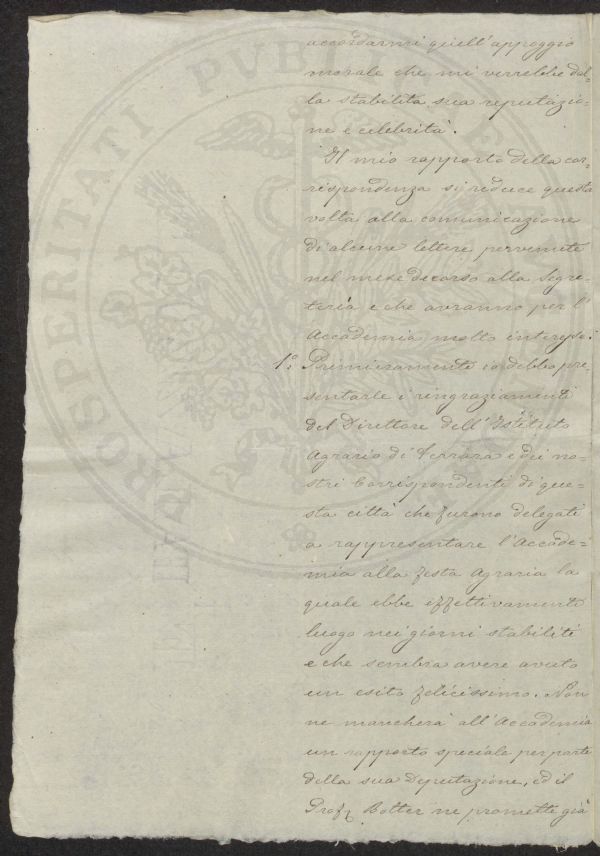 accordarmi quell'appoggio
morale che mi verrebbe dal=
la stabilita sua reputazio=
ne e celebrità.
Il mio rapporto della cor=
rispondenza si riduce questa
volta alla comunicazione
di alcune lettere pervenute
nel mese decorso alla Segre=
teria e che avranno per l'
Accademia molto interesse.
1.º Primieramente io debbo pre=
sentarle i ringraziamenti
del Direttore dell'Istituto
Agrario di Ferrara e dei no=
stri Corrispondenti di que=
sta città che furono delegati
a rappresentare l'Accade=
mia alla festa Agraria la
quale ebbe effettivamente
luogo nei giorni stabiliti
e che sembra avere avuto
un esito felicissimo. Non
ne mancherà all'Accademia
un rapporto speciale per parte
della sua Deputazione, ed il
Prof. Botter ne promette già
PROSPERITATI PUBLICAE